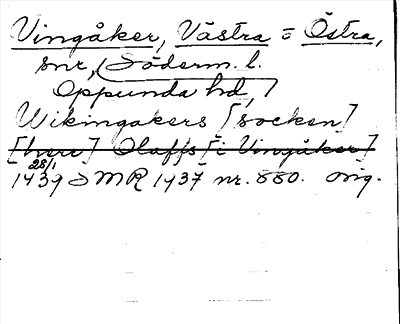 Vingåker, Västra = Östra,
snr, Söderm. l.
Oppunda hd,
Wikingakers [socken]
[herre] Olaffs [i Vingåker]
28/1
1439 SMR 1437 nr. 880. orig.